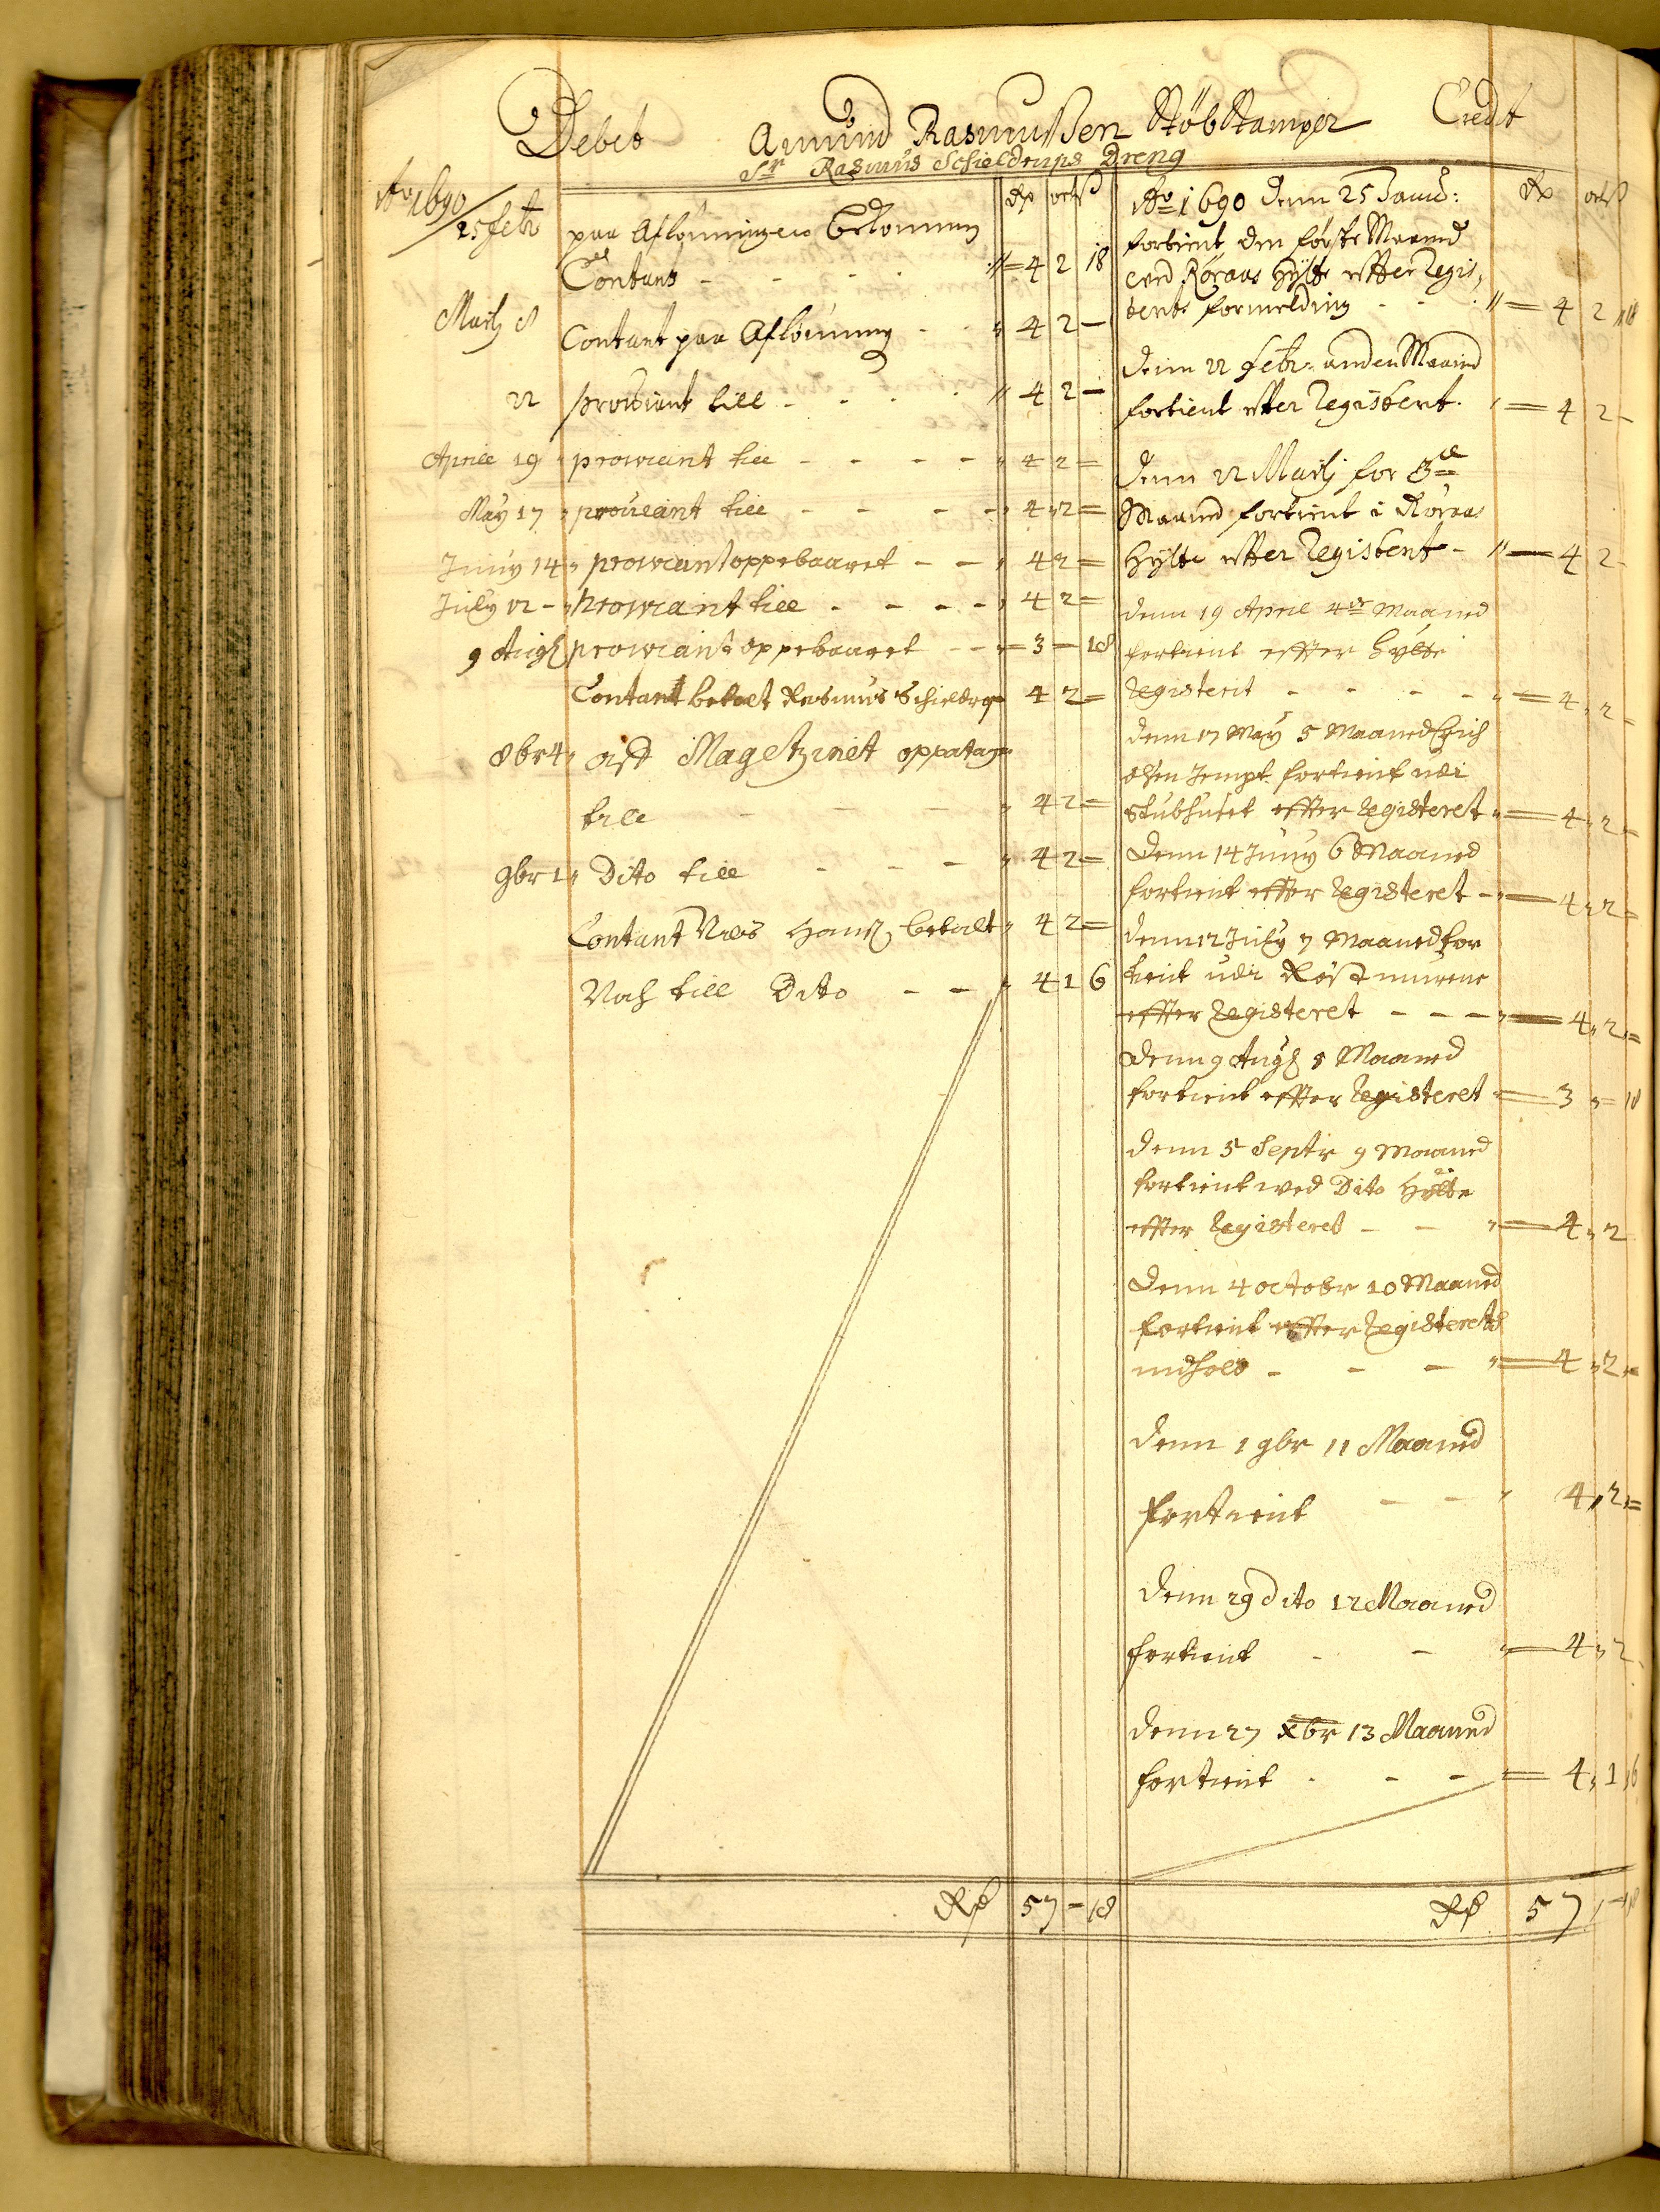 Debet Amund Rasmussen Støbstamper Credit
Sr Rasmus Schieldrups Dreng
Ao 1690
25 febr
Rp ort ß
paa Aflønningen bekommen
Contant - - - - 4 2 18
Martj 8 Contant paa Aflønning - - 4 2 -
22 proviant till - - - - 4 2 -
Aprill 19 proviant till - - - - 4 2 =
May 17 proviant till - - - - 4 2 =
Juny 14 proviant oppebaaret - - 4 2 =
July 12 - proviant till - - - - 4 2 =
9 Aug proviant oppebaaret - - 3 - 18
Contant betalt Rasmus Schieldrop 4 2 =
8br 4 aff Magetzinet oppatage
till - - - 4 2 =
9br 1 Dito till - - - 4 2 =
Contant Niels Hans. betalt 4 2 =
Noch till Dito - - 4 1 6
Rp 57 - 18
Rp ort ß
Ao 1690 Denn 25 Janu:
fortient den første Maaned
ved Røraas Hytte effter Regis,
terts formelding - - 4 2 18
Denn 22 febr: anden Maaned
fortient effter Registert. 4 2 -
Denn 22 Martj for 3de
Maaned fortient i Røraas
Hytte effter Registert - 4 2 -
denn 19 April 4de Maaned
fortient effter hytte
Registerit - - - - 4 2 -
denn 17 May 5 Maaned Erich
olsen Jempt. fortient udi
Stubhuset effter Registeret 4 2 =
Denn 14 Juny 6 Maaned
fortient effter Registeret - 4 2 =
denn 12 July 7 Maaned for
tient udi Røstmurene
effter Registeret - - - 4 2 =
denn 9 Aug 8 Maaned
fortient effter Registeret = 3 = 18
denn 5 Septr 9 Maaned
fortient wed Dito Hytte
effter Registeret - - 4 2
Denn 4 octobr 10 Maaned
fortient effter Registerets
indhold - - - 4 2 =
denn 1 9br 11 Maaned
fortient - - 4 2 =
denn 29 dito 12 Maaned
fortient - - 4 2
denn 27 xbr 13 Maaned
fortient - - - = 4 1 6
Rp 57 - 18